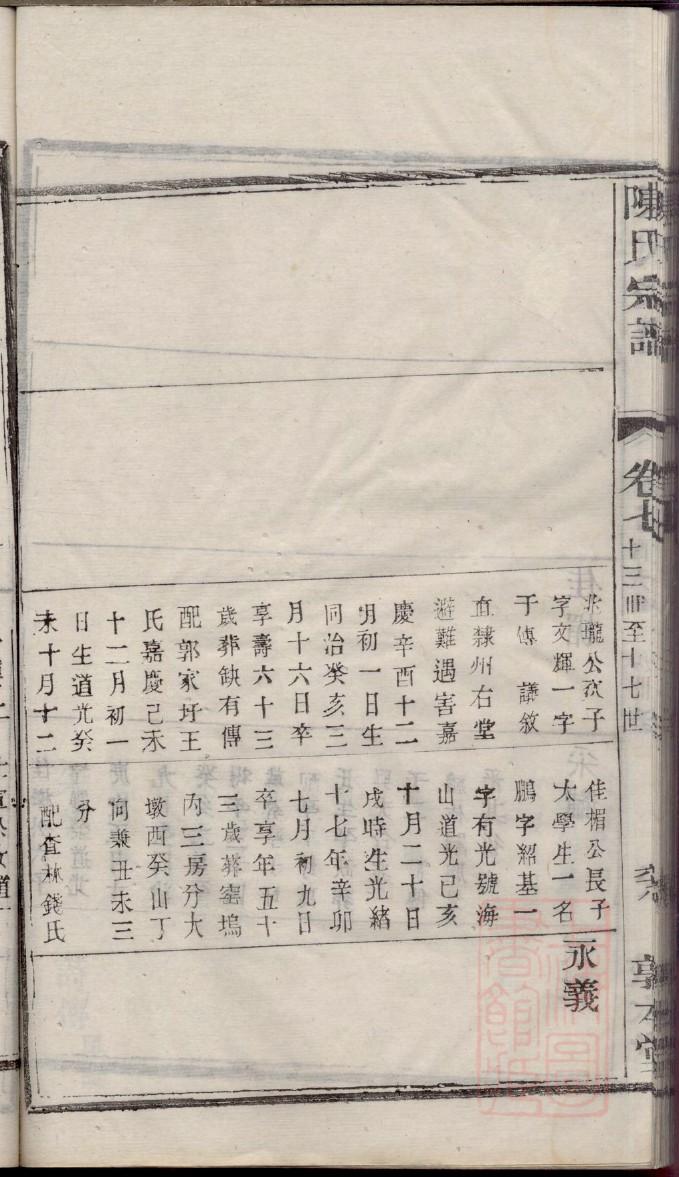 陳氏宗譜
卷七
十三世至十七世
敦本堂
兆瓏公次子
字文輝一字
于傳 議敘
直隸州右堂
避難遇害嘉
慶辛酉十二
月初一日生
同治癸亥三
月十六日卒
享壽六十三
歲葬缺有傳
配郭家圩王
氏嘉慶己未
十二月初一
日生道光癸
未十月十二
佳楣公長子
太學生一名
鵬字紹基一
字有光號海
山道光己亥
十月二十日
戌時生光緒
十七年辛卯
七月初九日
卒享年五十
三歲葬窰塢
內三房分大
墩西癸山丁
向兼丑未三
分
配查林錢氏
永義